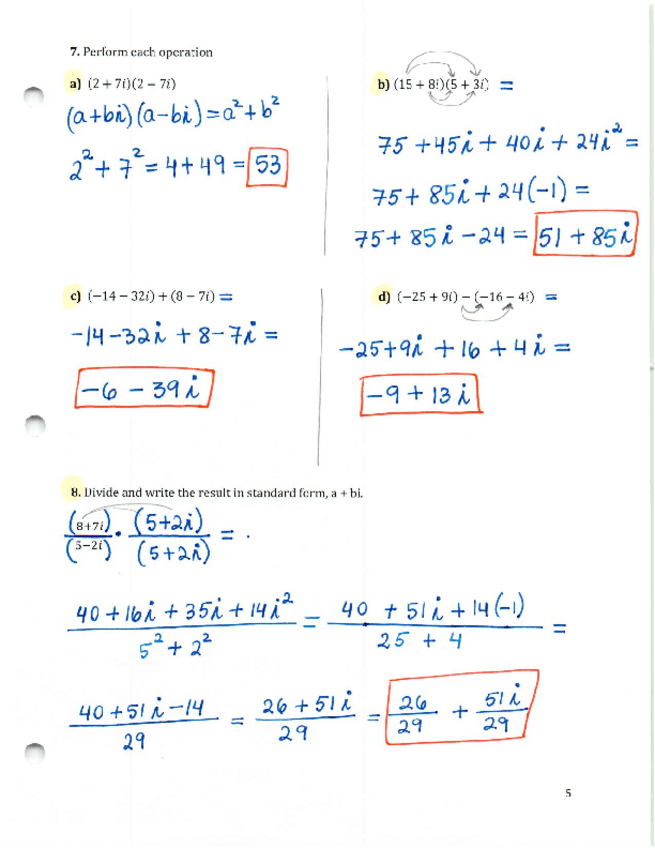 7. Perform each operation
a) (2 + 7i)(2 − 7i)
(a+bi)(a−bi) = a² + b²
2² + 7² = 4 + 49 = 53
b) (15 + 8i)(5 + 3i) =
75 + 45i + 40i + 24i² =
75 + 85i + 24(−1) =
75 + 85i − 24 = 51 + 85i
c) (−14 − 32i) + (8 − 7i) =
−14 − 32i + 8 − 7i =
−6 − 39i
d) (−25 + 9i) − (−16 − 4i) =
−25 + 9i + 16 + 4i =
−9 + 13i
8. Divide and write the result in standard form, a + bi.
(8+7i)/(5−2i) · (5+2i)/(5+2i) = .
(40 + 16i + 35i + 14i²)/(5² + 2²) = (40 + 51i + 14(−1))/(25 + 4) =
(40 + 51i − 14)/29 = (26 + 51i)/29 = 26/29 + 51i/29
5